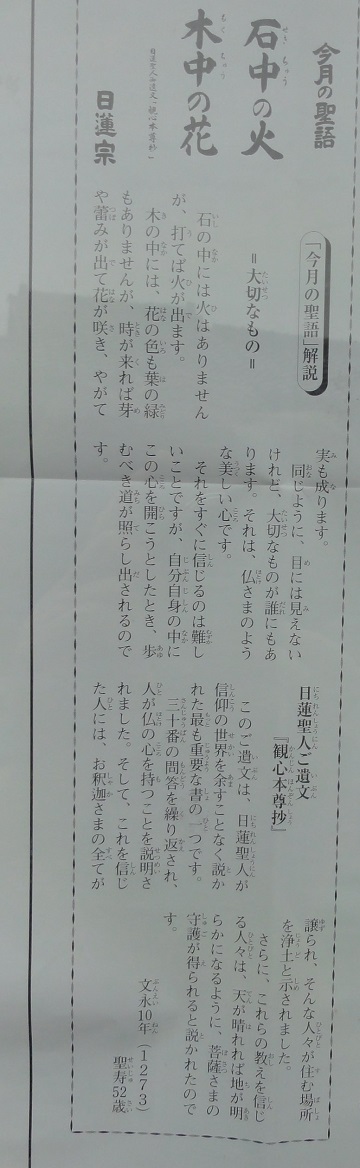 今月の聖語
石中の火
木中の花
日蓮聖人御遺文「観心本尊抄」
日蓮宗
「今月の聖語」解説
＝大切なもの＝
石の中には火はありません
が、打てば火が出ます。
木の中には、花の色も葉の緑
もありませんが、時が来れば芽
や蕾みが出て花が咲き、やがて
実も成ります。
同じように、目には見えない
けれど、大切なものが誰にもあ
ります。それは、仏さまのよう
な美しい心です。
それをすぐに信じるのは難し
いことですが、自分自身の中に
この心を開こうとしたとき、歩
むべき道が照らし出されるので
す。
日蓮聖人ご遺文
『観心本尊抄』
このご遺文は、日蓮聖人が
信仰の世界を余すことなく説か
れた最も重要な書の一つです。
三十番の問答を繰り返され、
人が仏の心を持つことを説明さ
れました。そして、これを信じ
た人には、お釈迦さまの全てが
譲られ、そんな人々が住む場所
を浄土と示されました。
さらに、これらの教えを信じ
る人々は、天が晴れれば地が明
らかになるように、菩薩さまの
守護が得られると説かれたので
す。
文永10年（1273）
聖寿52歳